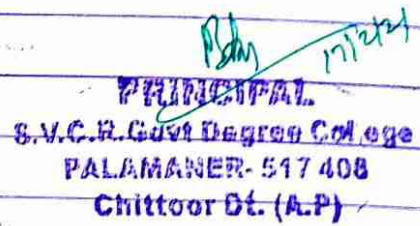 17/2/21
PRINCIPAL
S.V.C.R.Govt Degree College
PALAMANER- 517 408
Chittoor Dt. (A.P)